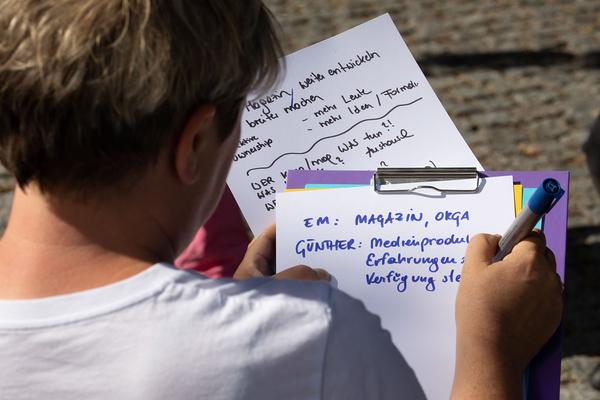 Magazin weiter entwickeln
breiter machen
- mehr Leute
- mehr Iden / Formei
ownership
WAS tun?!
Austausch
EM: MAGAZIN, ORGA
GÜNTHER: Medienproduk
Erfahrungen
Verfügung ste